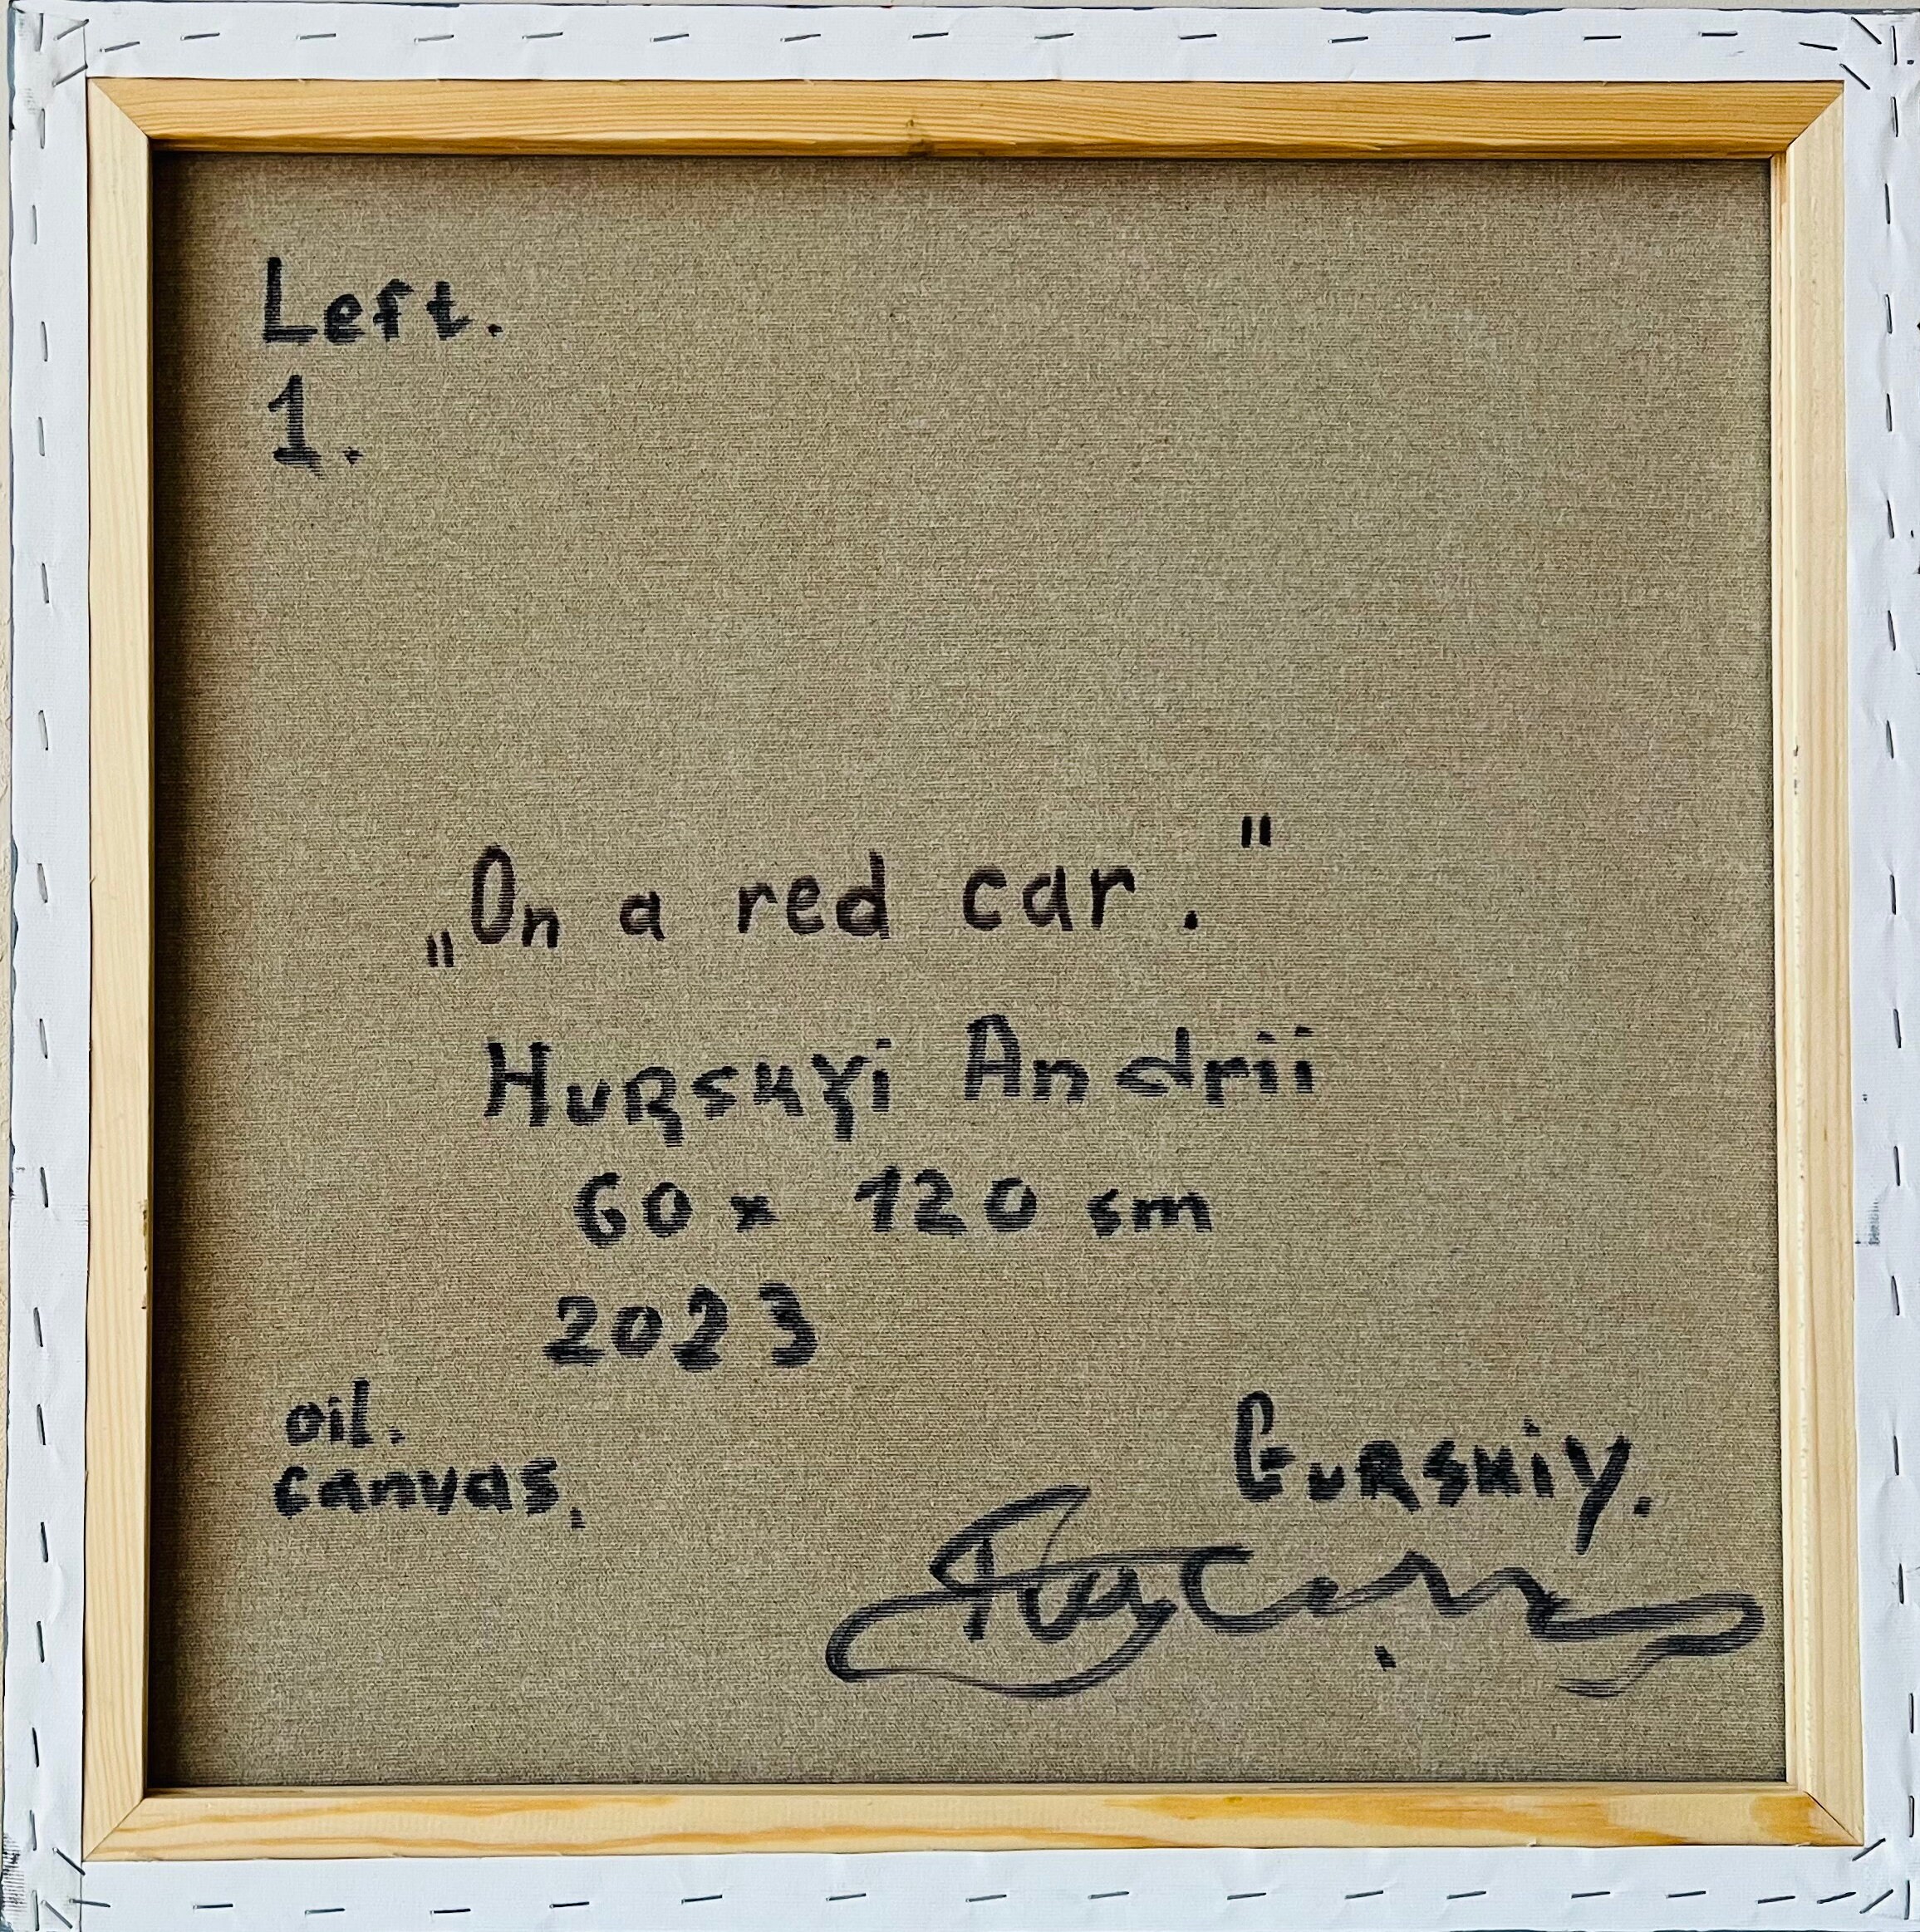 Left.
1.
„On a red car."
Hurskyi Andrii
60 x 120 sm
2023
oil.
canvas.
Gurskiy.